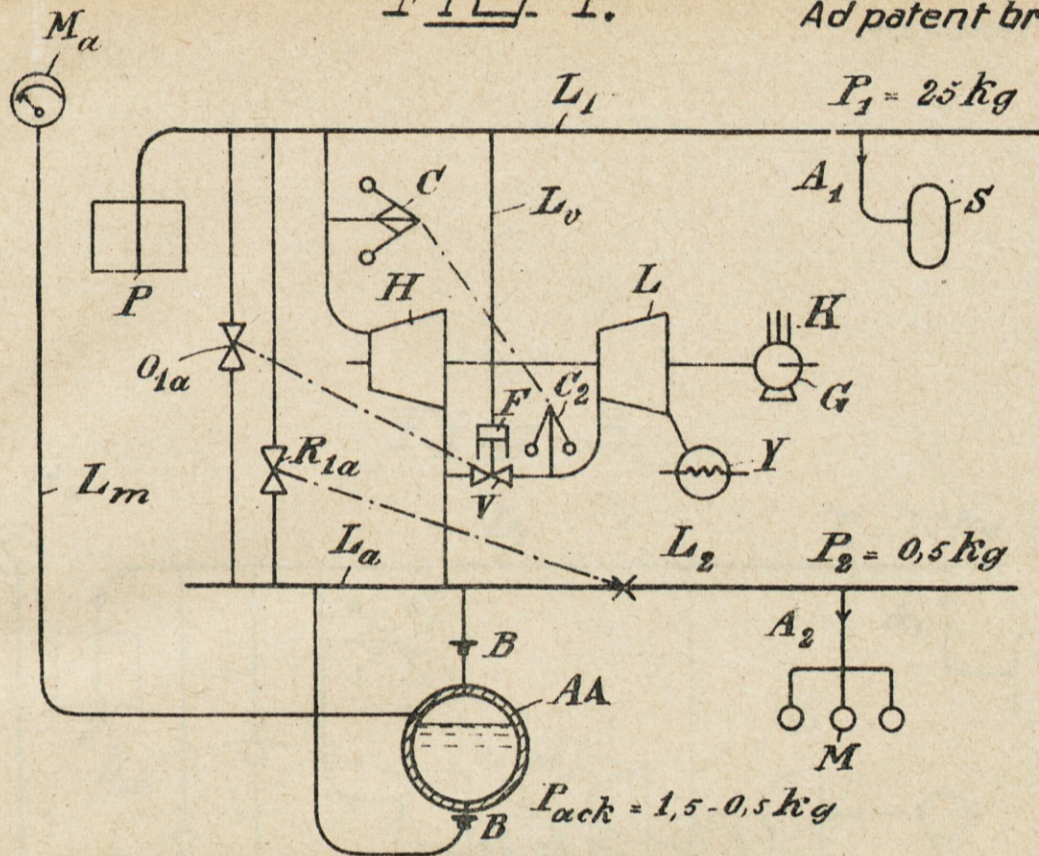 FIG. 1.
Ad patent br
Ma
L1
P1 = 25 kg
C
Lv
A1
S
P
H
L
K
O1a
F
C2
G
R1a
V
Y
Lm
La
L2
P2 = 0,5 kg
B
A2
AA
M
Pack = 1,5-0,5 kg
B